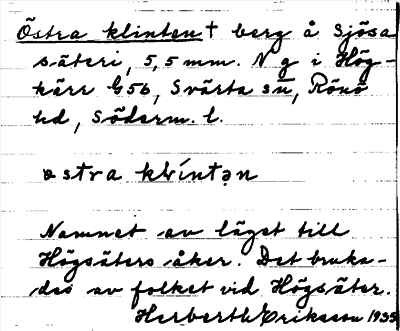 Östra klinten † berg å Sjösa
säteri, 5,5 mm. N g i Hög-
kärr G56, Svärta sn, Rönö
hd, Söderm. l.
østra klintən
Namnet av läget till
Högsäters åker. Det bruka-
des av folket vid Högsäter.
Herberth Eriksson 1935